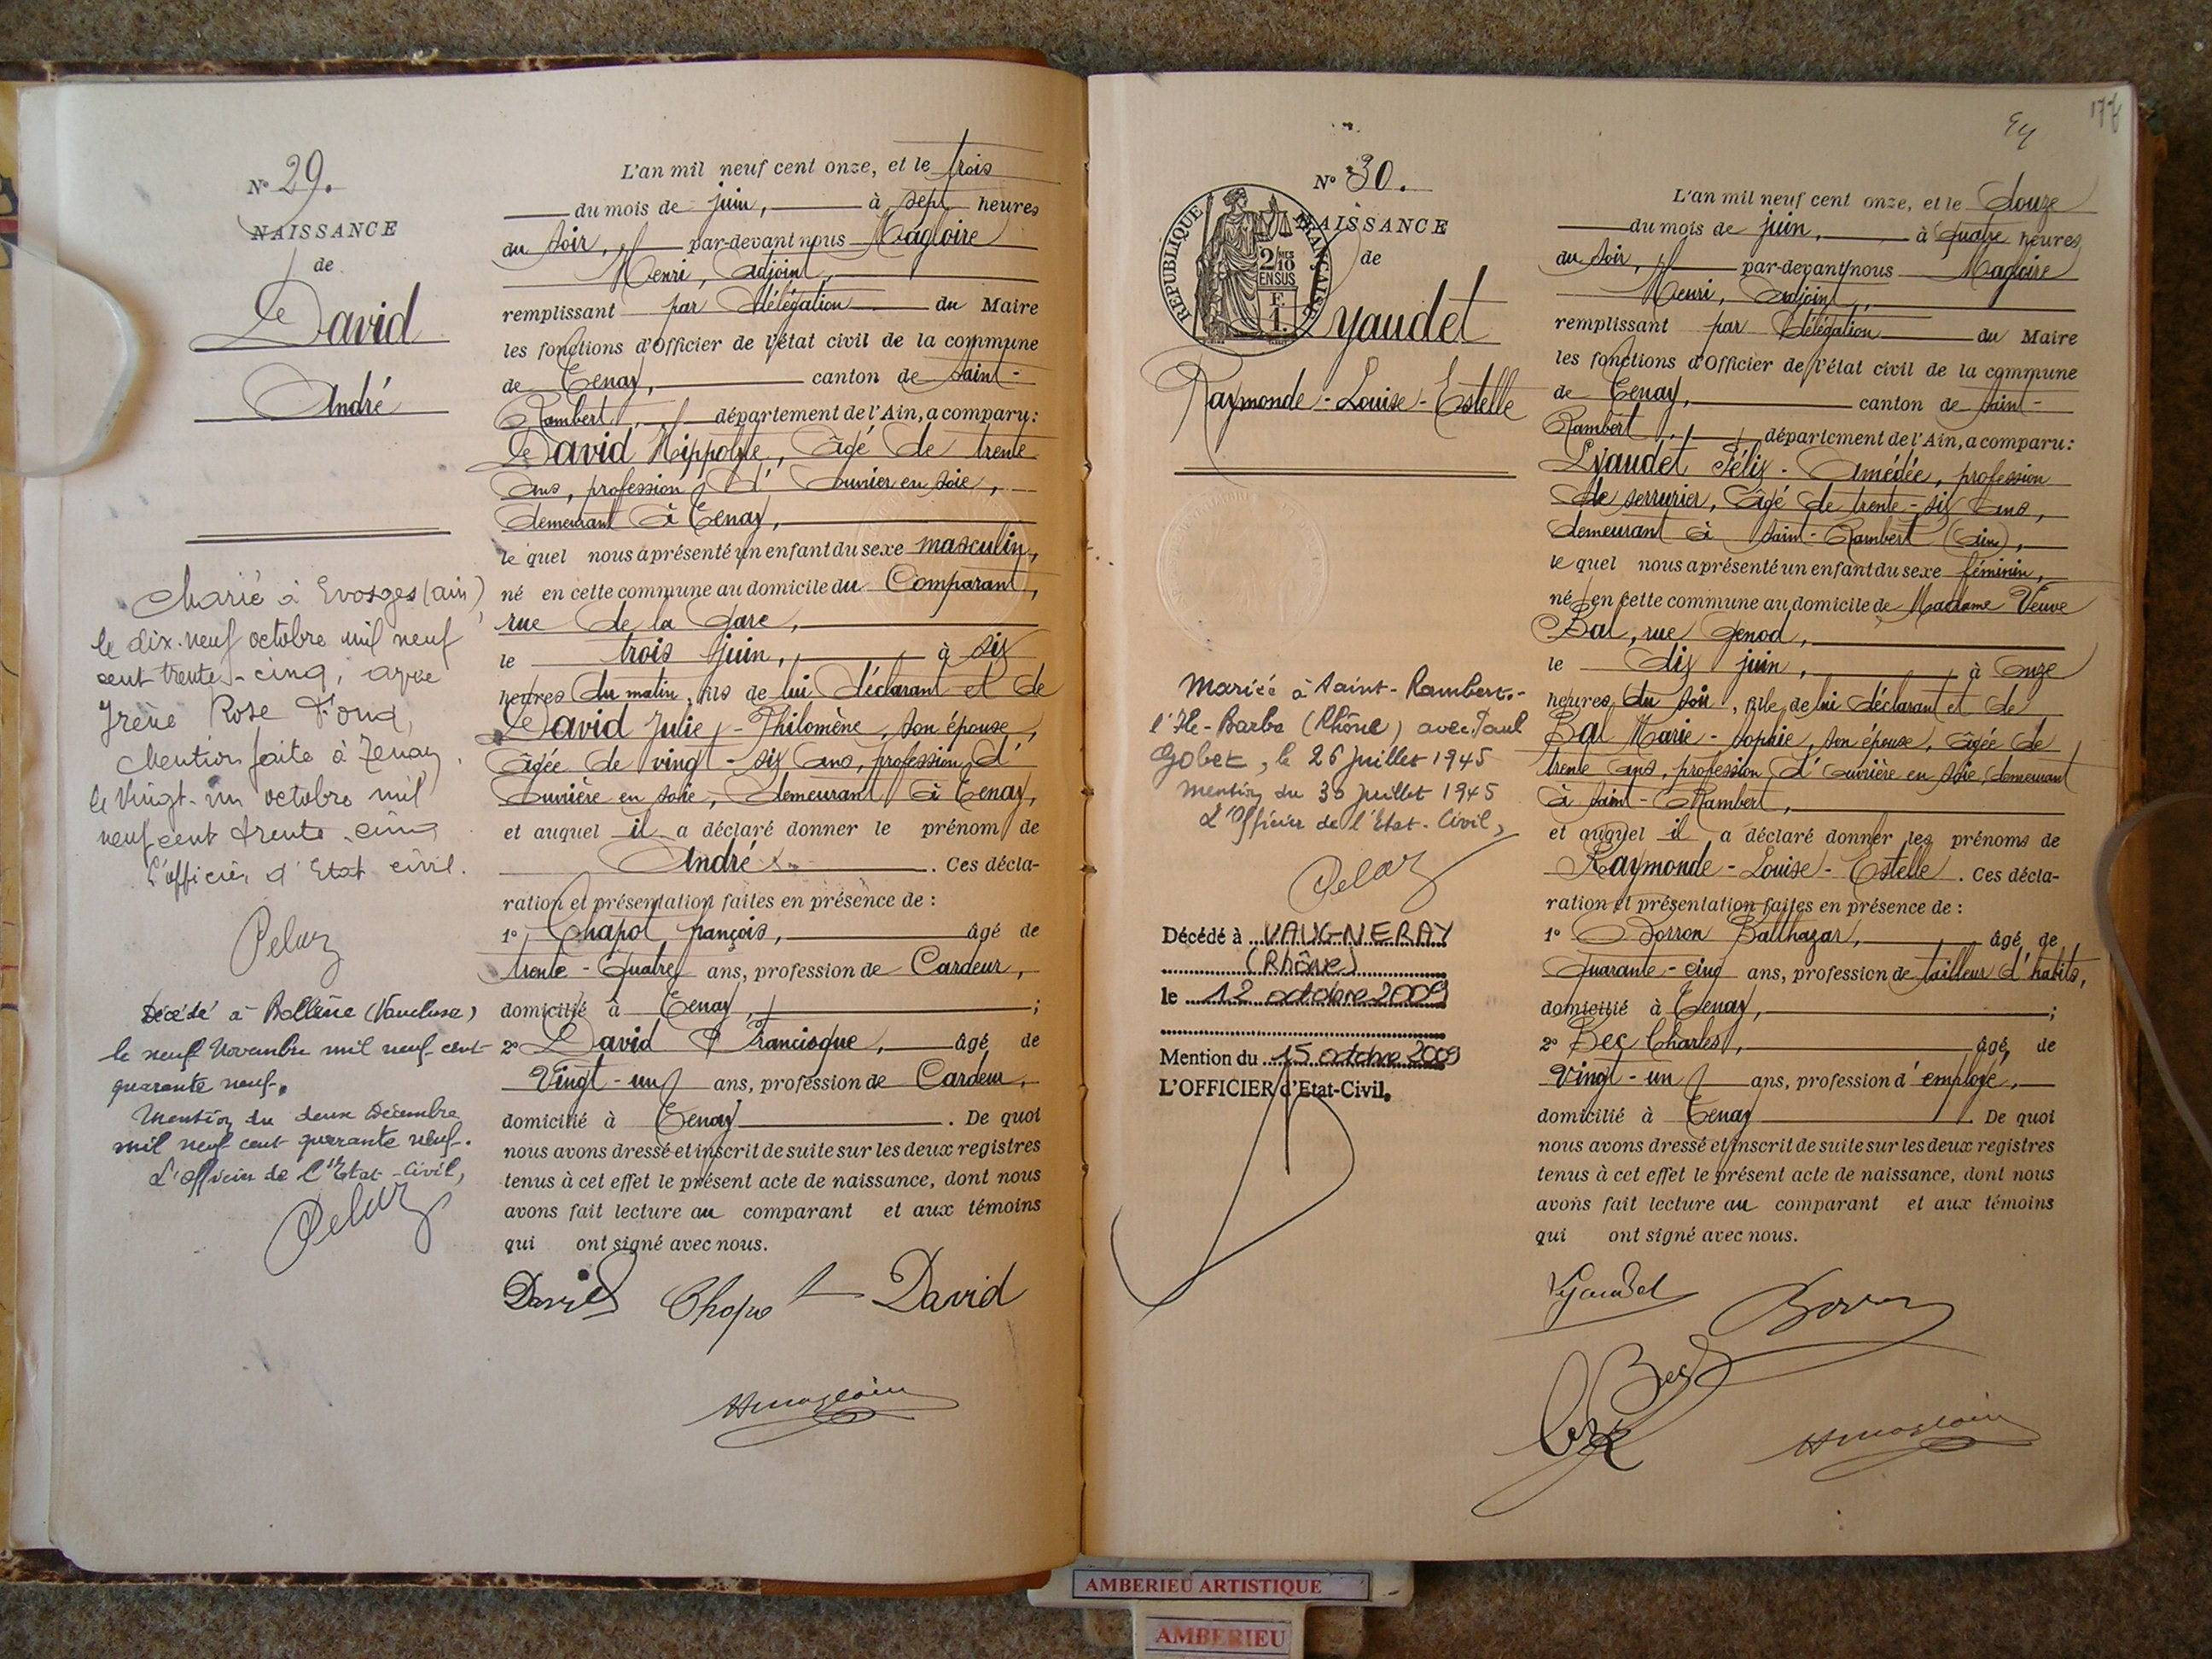 N° 29.
NAISSANCE
de
David
André
Marié à Evosges (ain)
le dix-neuf octobre mil neuf
cent trente-cinq, avec
Irène Rose
Mention faite à Tenay
le Vingt-un octobre mil
neuf cent trente-cinq
L'officier d'Etat civil.
Décédé à Bollène (Vaucluse)
le neuf Novembre mil neuf cent
quarante neuf.
Mention du deux Décembre
mil neuf cent quarante neuf.
L'Officier de l'Etat-Civil,
L'an mil neuf cent onze, et le trois
du mois de juin, à sept heures
du soir, par-devant nous Magloire
Henri, adjoint,
remplissant par délégation du Maire
les fonctions d'Officier de l'état civil de la commune
de Tenay, canton de Saint-
Rambert, département de l'Ain, a comparu:
David Hippolyte, âgé de trente
ans, profession d'ouvrier en soie,
demeurant à Tenay,
le quel nous a présenté un enfant du sexe masculin,
né en cette commune au domicile du Comparant,
rue de la Gare,
le trois juin, à six
heures du matin, fils de lui déclarant et de
David Julie-Philomène, son épouse,
âgée de vingt-six ans, profession d'
ouvrière en soie, demeurant à Tenay,
et auquel il a déclaré donner le prénom de
André. Ces décla-
ration et présentation faites en présence de :
1° Chapot françois, âgé de
trente-quatre ans, profession de Cardeur,
domicilié à Tenay, ;
2° David Francisque, âgé de
Vingt-un ans, profession de Cardeur,
domicilié à Tenay. De quoi
nous avons dressé et inscrit de suite sur les deux registres
tenus à cet effet le présent acte de naissance, dont nous
avons fait lecture au comparant et aux témoins
qui ont signé avec nous.
David Chapot David
HMagloire
177
N° 30.
REPUBLIQUE FRANÇAISE
2/10 MES
EN SUS
F.
1.
NAISSANCE
de
Lyaudet
Raymonde-Louise-Estelle
Mariée à Saint-Rambert-
l'Ile-Barbe (Rhône) avec Paul
Gobet, le 26 Juillet 1945
Mention du 30 Juillet 1945
L'Officier de l'Etat-Civil,
Décédé à VAUGNERAY
(Rhône)
le 12 octobre 2009
Mention du 15 octobre 2009
L'OFFICIER d'Etat-Civil.
L'an mil neuf cent onze, et le douze
du mois de juin, à quatre heures
du soir, par-devant nous Magloire
Henri, adjoint,
remplissant par délégation du Maire
les fonctions d'Officier de l'état civil de la commune
de Tenay, canton de Saint-
Rambert, département de l'Ain, a comparu:
Lyaudet Félix-Amédée, profession
de serrurier, âgé de trente-six ans,
demeurant à Saint-Rambert (Ain),
le quel nous a présenté un enfant du sexe féminin,
né en cette commune au domicile de Madame Veuve
Bal, rue Genod,
le dix juin, à onze
heures du soir, fille de lui déclarant et de
Bal Marie-Sophie, son épouse, âgée de
trente ans, profession d'ouvrière en soie, demeurant
à Saint-Rambert,
et auquel il a déclaré donner les prénoms de
Raymonde-Louise-Estelle. Ces décla-
ration et présentation faites en présence de :
1° Borron Balthazar, âgé de
quarante-cinq ans, profession de tailleur d'habits,
domicilié à Tenay, ;
2° Bec Charles, âgé de
Vingt-un ans, profession d'employé,
domicilié à Tenay. De quoi
nous avons dressé et inscrit de suite sur les deux registres
tenus à cet effet le présent acte de naissance, dont nous
avons fait lecture au comparant et aux témoins
qui ont signé avec nous.
Lyaudet
Bec
HMagloire
AMBERIEU ARTISTIQUE
AMBERIEU